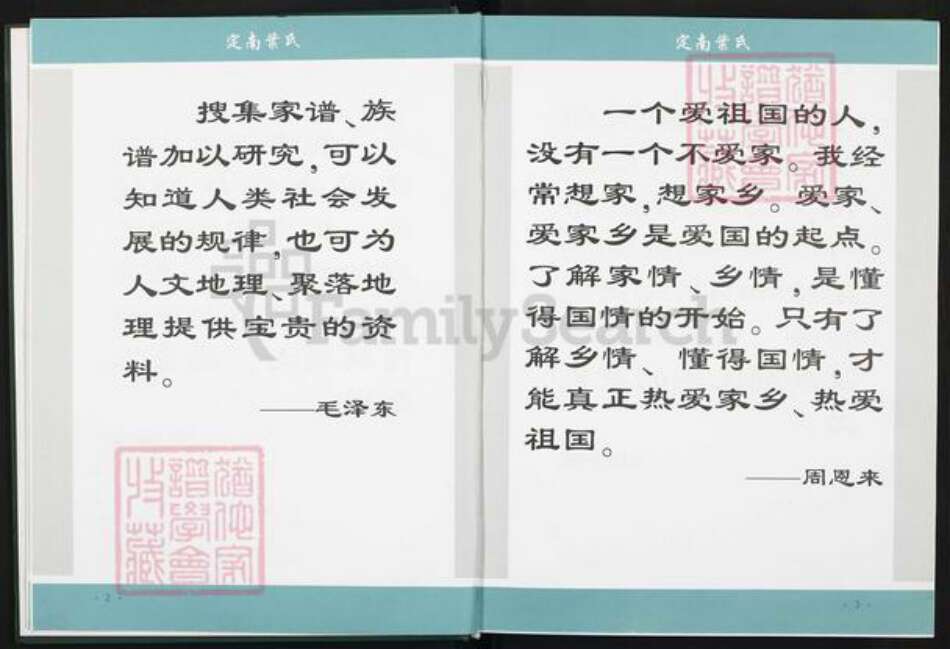 定南葉氏
搜集家谱、族
谱加以研究,可以
知道人类社会发
展的规律,也可为
人文地理、聚落地
理提供宝贵的资
料。
——毛泽东
·2·
定南葉氏
一个爱祖国的人,
没有一个不爱家。我经
常想家,想家乡。爱家、
爱家乡是爱国的起点。
了解家情、乡情,是懂
得国情的开始。只有了
解乡情、懂得国情,才
能真正热爱家乡、热爱
祖国。
——周恩来
·3·
FamilySearch
譜學會
收藏